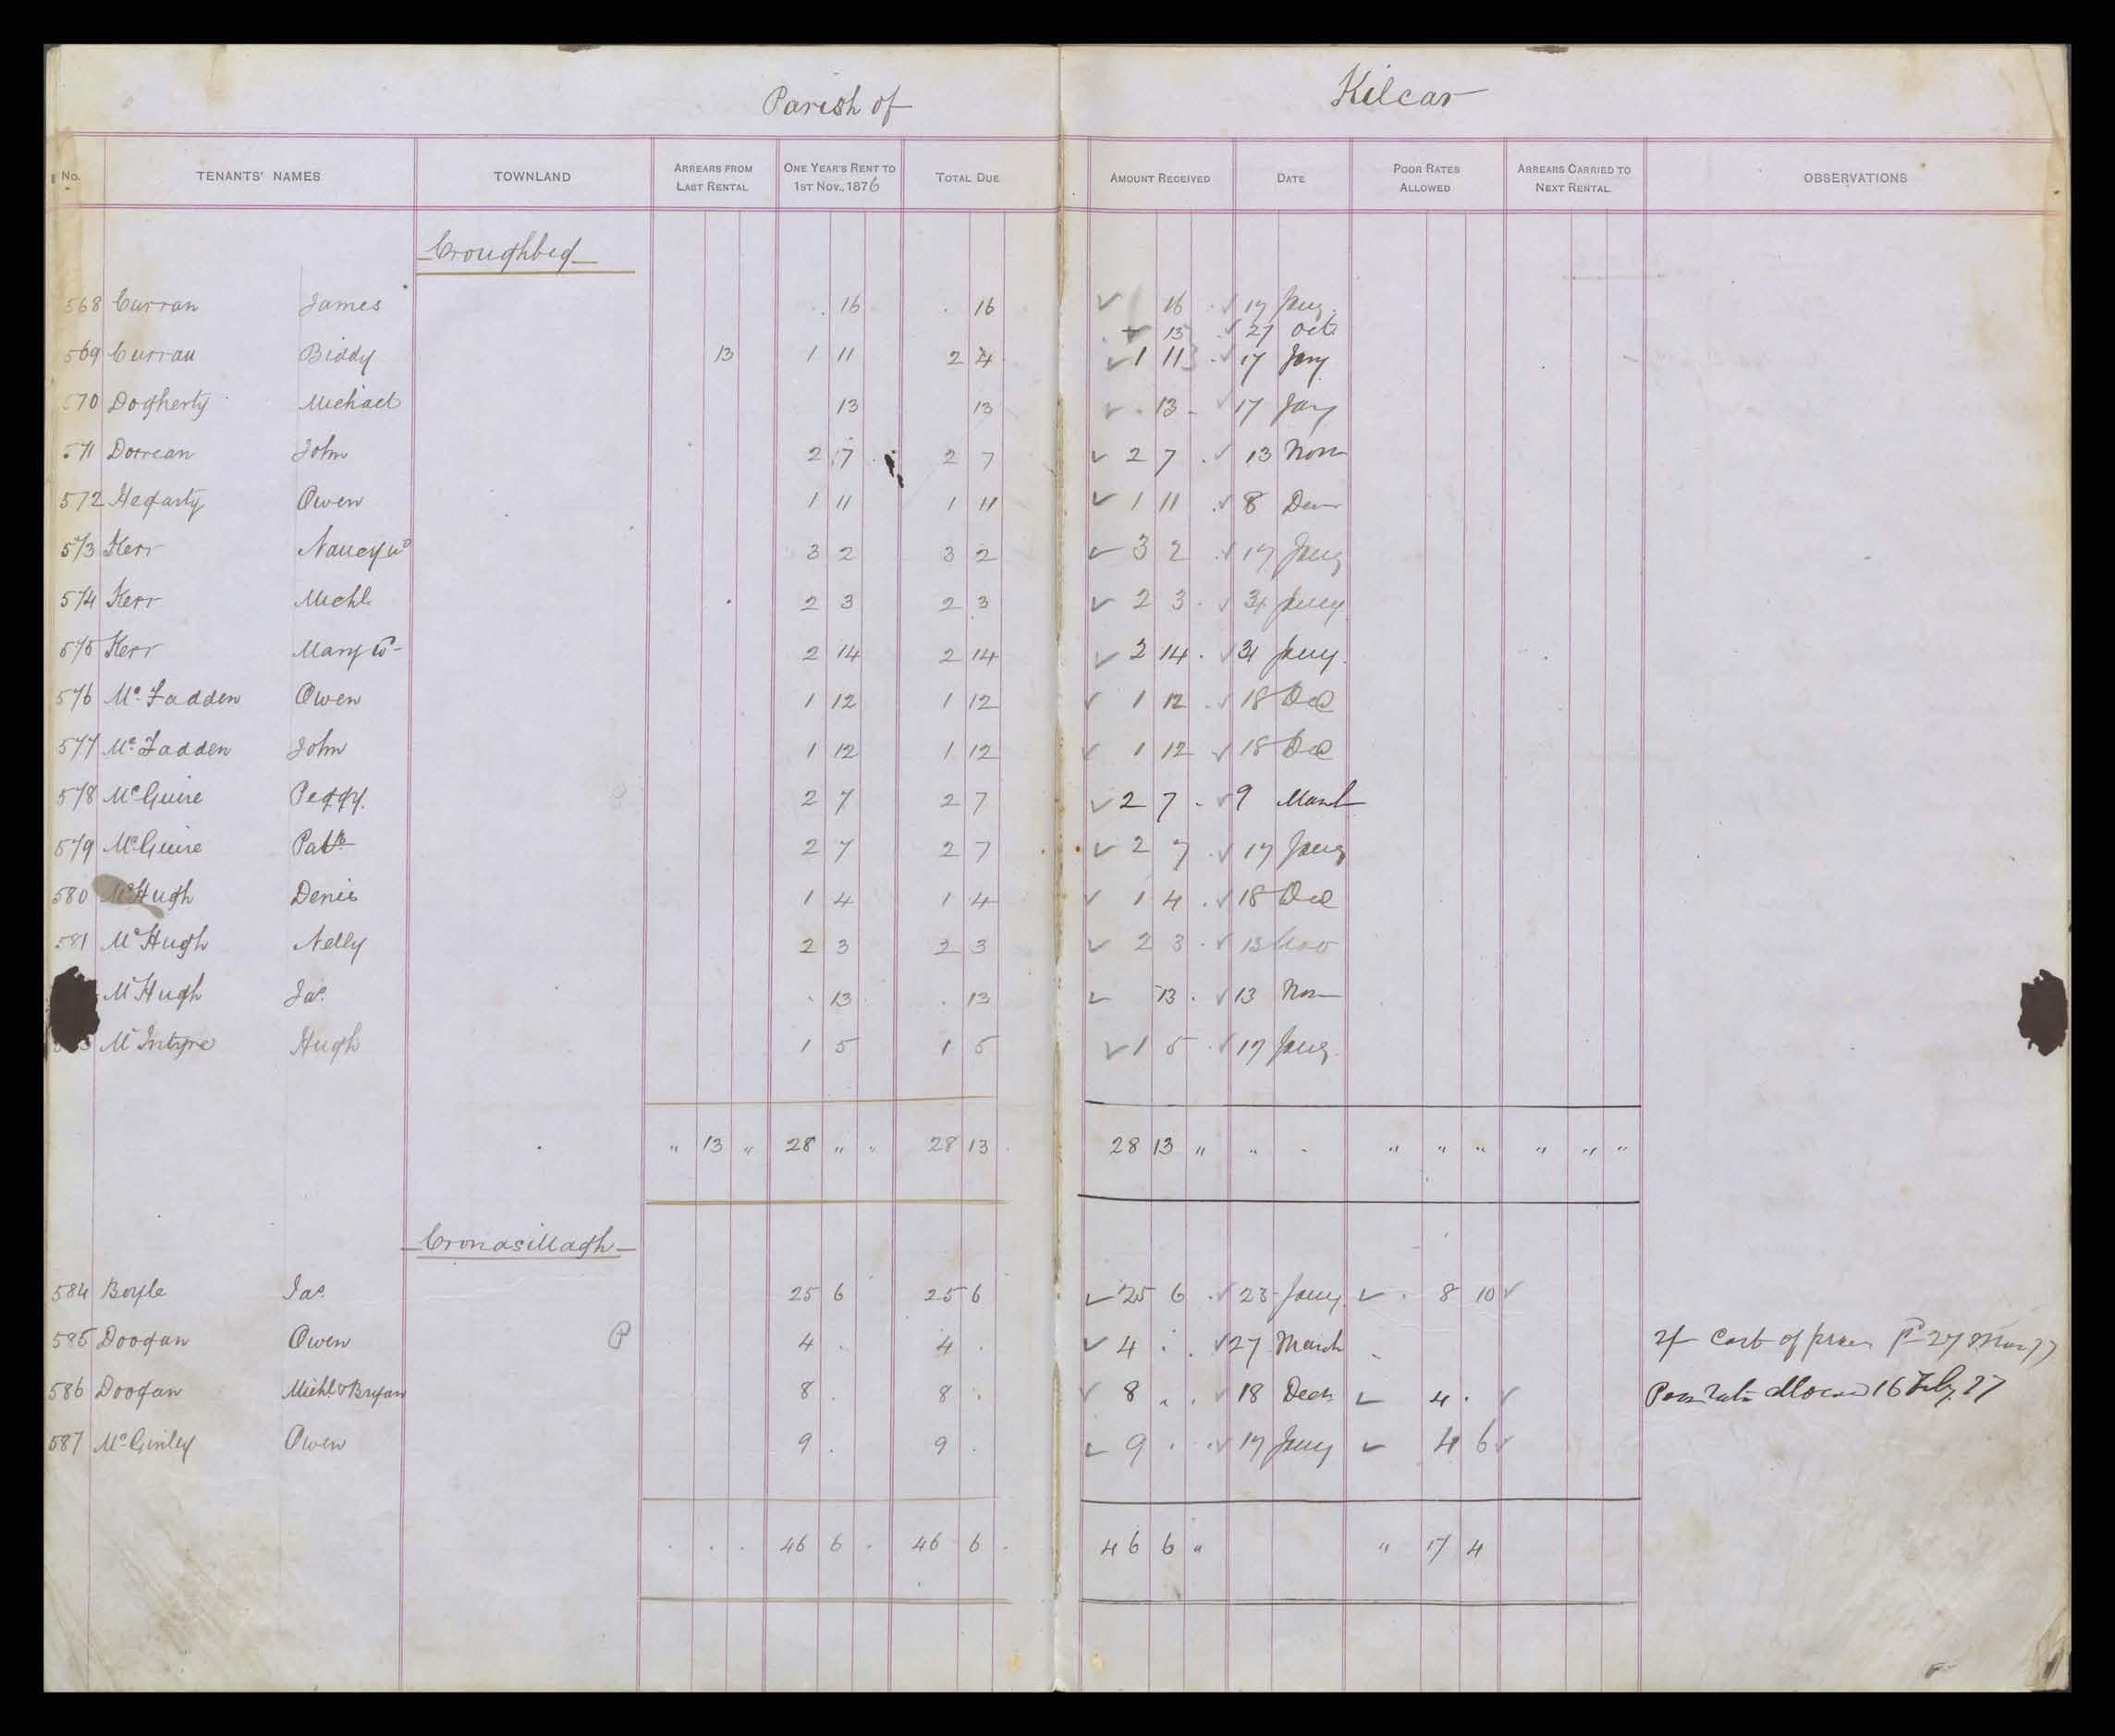 Parish of Kilcar
No. TENANTS' NAMES TOWNLAND ARREARS FROM LAST RENTAL ONE YEAR'S RENT TO 1ST NOV., 1876 TOTAL DUE AMOUNT RECEIVED DATE POOR RATES ALLOWED ARREARS CARRIED TO NEXT RENTAL OBSERVATIONS
Croughbeg
568 Curran James . 16 . 16 ✓ 16 . ✓ 17 Jany
✓ 13 ✓ 27 Oct
569 Curran Biddy 13 1 11 2 4 ✓ 1 11 . ✓ 17 Jany
570 Dogherty Michael 13 13 ✓ . 13 - ✓ 17 Jany
571 Dorrean John 2 7 . 2 7 ✓ 2 7 . ✓ 13 Nov
572 Hegarty Owen 1 11 1 11 ✓ 1 11 . ✓ 8 Decr
573 Kerr Nancy wd 3 2 3 2 ✓ 3 2 . ✓ 17 Jany
574 Kerr Michl 2 3 2 3 ✓ 2 3 . ✓ 31 Jany
575 Kerr Mary W 2 14 2 14 ✓ 2 14 . ✓ 31 Jany.
576 Mc Fadden Owen 1 12 1 12 ✓ 1 12 . ✓ 18 Dec
577 Mc Fadden John 1 12 1 12 ✓ 1 12 ✓ 18 Dec
578 McGuire Peggy. 2 7 2 7 ✓ 2 7 . ✓ 9 March
579 McGuire Patk 2 7 2 7 ✓ 2 7 . ✓ 17 Jany
580 McHugh Denis 1 4 1 4 ✓ 1 4 . ✓ 18 Dec
581 McHugh Nelly 2 3 2 3 ✓ 2 3 . ✓ 13 Nov
McHugh Jas. . 13 . 13 ✓ 13 . ✓ 13 Nov
3 McIntyre Hugh 1 5 1 5 ✓ 1 5 . ✓ 17 Jany.
" 13 " 28 " " 28 13 . 28 13 " " - " " " " " "
Cronasillagh
584 Boyle Jas. 25 6 25 6 ✓ 25 6 . ✓ 23 Jany. ✓ . 8 10 ✓
585 Doogan Owen P 4 . 4 . ✓ 4 . . ✓ 27 March - 2/ Cost of process pd 27 Mar 77
586 Doogan Michl & Bryan 8 . 8 . ✓ 8 . . ✓ 18 Decr ✓ 4 . ✓ Poor rate allowed 16 Feby 77
587 McGinley Owen 9 . 9 . ✓ 9 . . ✓ 17 Jany ✓ 4 6 ✓
. . . 46 6 . 46 6 . 46 6 " " 17 4